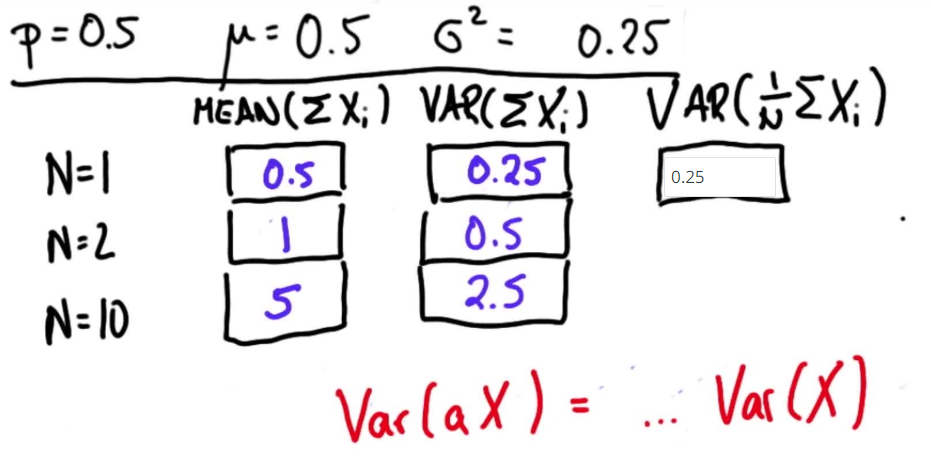 p = 0.5 μ = 0.5 σ² = 0.25
MEAN(Σ Xᵢ) VAR(Σ Xᵢ) VAR(1/N Σ Xᵢ)
N=1 0.5 0.25 0.25
N=2 1 0.5
N=10 5 2.5
Var(aX) = ... Var(X)